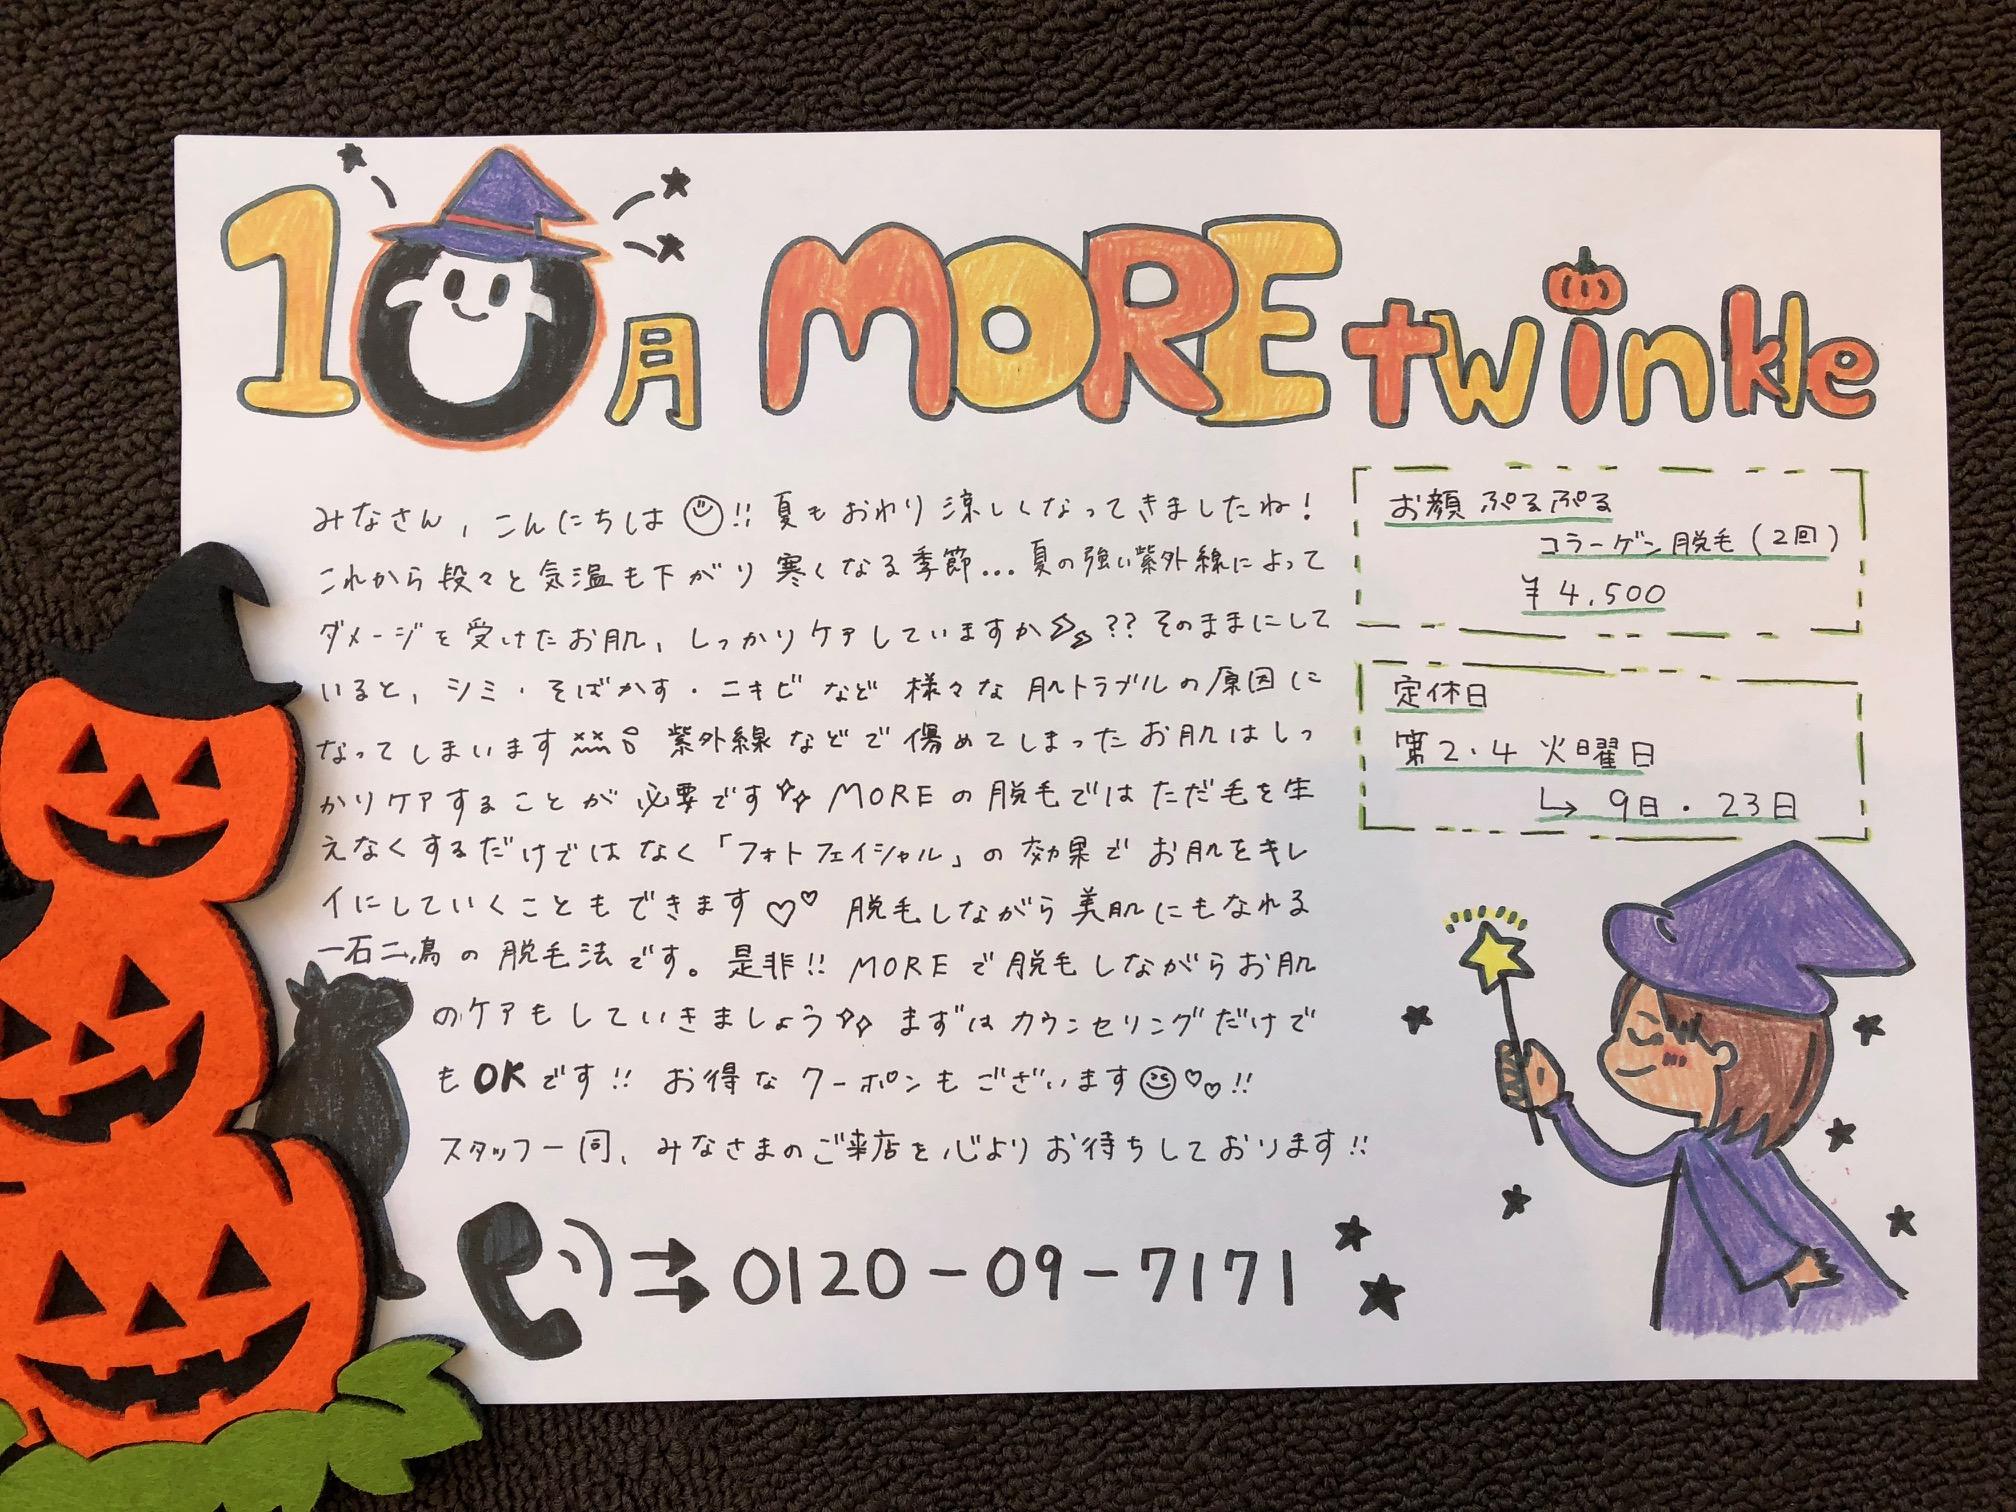 10月 MORE twinkle
みなさん、こんにちは!! 夏もおわり涼しくなってきましたね!
これから段々と気温も下がり寒くなる季節...夏の強い紫外線によって
ダメージを受けたお肌、しっかりケアしていますか??そのままにして
いると、シミ・そばかす・ニキビなど様々な肌トラブルの原因に
なってしまいます 紫外線などで傷めてしまったお肌はしっ
かりケアすることが必要です MOREの脱毛ではただ毛を生
えなくするだけではなく「フォトフェイシャル」の効果でお肌をキレ
イにしていくこともできます♡♡ 脱毛しながら美肌にもなれる
一石二鳥の脱毛法です。是非!! MOREで脱毛しながらお肌
のケアもしていきましょう まずはカウンセリングだけで
もOKです!! お得なクーポンもございます♡♡!!
スタッフ一同、みなさまのご来店を心よりお待ちしております!!
→→ 0120-09-7171
お顔ぷるぷる
コラーゲン脱毛(2回)
¥4,500
定休日
第2・4 火曜日
↳ 9日・23日